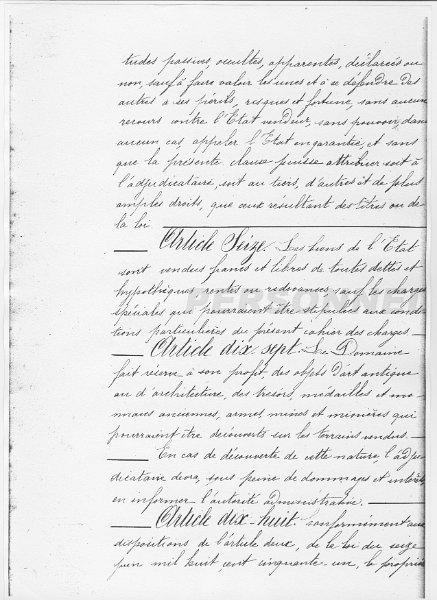 tudes passives, occultes, apparentes, déclarées ou
non, sauf à faire valoir les unes et à se défendre des
autres à ses périls, risques et fortune, sans aucun
recours contre l'Etat vendeur, sans pouvoir, dans
aucun cas, appeler l'Etat en garantie, et sans
que la présente clause puisse attribuer soit à
l'adjudicataire, soit au tiers, d'autres et de plus
amples droits, que ceux résultant des titres ou de
la loi
Article Seize. Les biens de l'Etat
sont vendus francs et libres de toutes dettes et
hypothèques, rentes ou redevances sauf les charges
spéciales qui pourraient être stipulées aux condi
tions particulières du présent cahier des charges
Article dix-sept. Le Domaine
fait réserve à son profit, des objets d'art antique
ou d'architecture, des trésors, médailles et mon
naies anciennes, armes, mines et minières qui
pourraient être découverts sur les terrains vendus.
En cas de découverte de cette nature, l'adju
dicataire devra, sous peine de dommages et intérêts
en informer l'autorité administrative.
Article dix-huit Conformément aux
dispositions de l'article deux, de la loi du seize
juin mil huit cent cinquante-un, le propriét
PERSONNEL